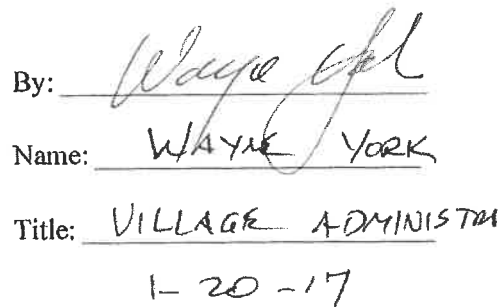 By: Wayne York
Name: WAYNE YORK
Title: VILLAGE ADMINISTRA
1-20-17